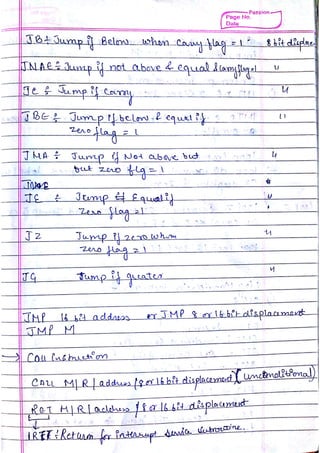 Passion
Page No.
Date
JB ÷ Jump if Below when Carry flag = 1 8 bit displace
JNAE ÷ Jump if not above & equal & carry flag=1 "
JC ÷ Jump if Carry "
JBE ÷ Jump if below & equal if "
zero flag = 1
JNA ÷ Jump if Not above but "
but zero flg = 1
JE ÷ Jump if Equal if "
Zero flag = 1
JZ Jump if zero when "
Zero flag = 1
JG Jump if greater "
JMP 16 bit address or JMP 8 or 16 bit displacement
JMP M
→ Call Instruction
CALL M | R | address / 8 or 16 bit displacement (unconditional)
RET M | R | address / 8 or 16 bit displacement
IRET : Return for interrupt service subroutine.